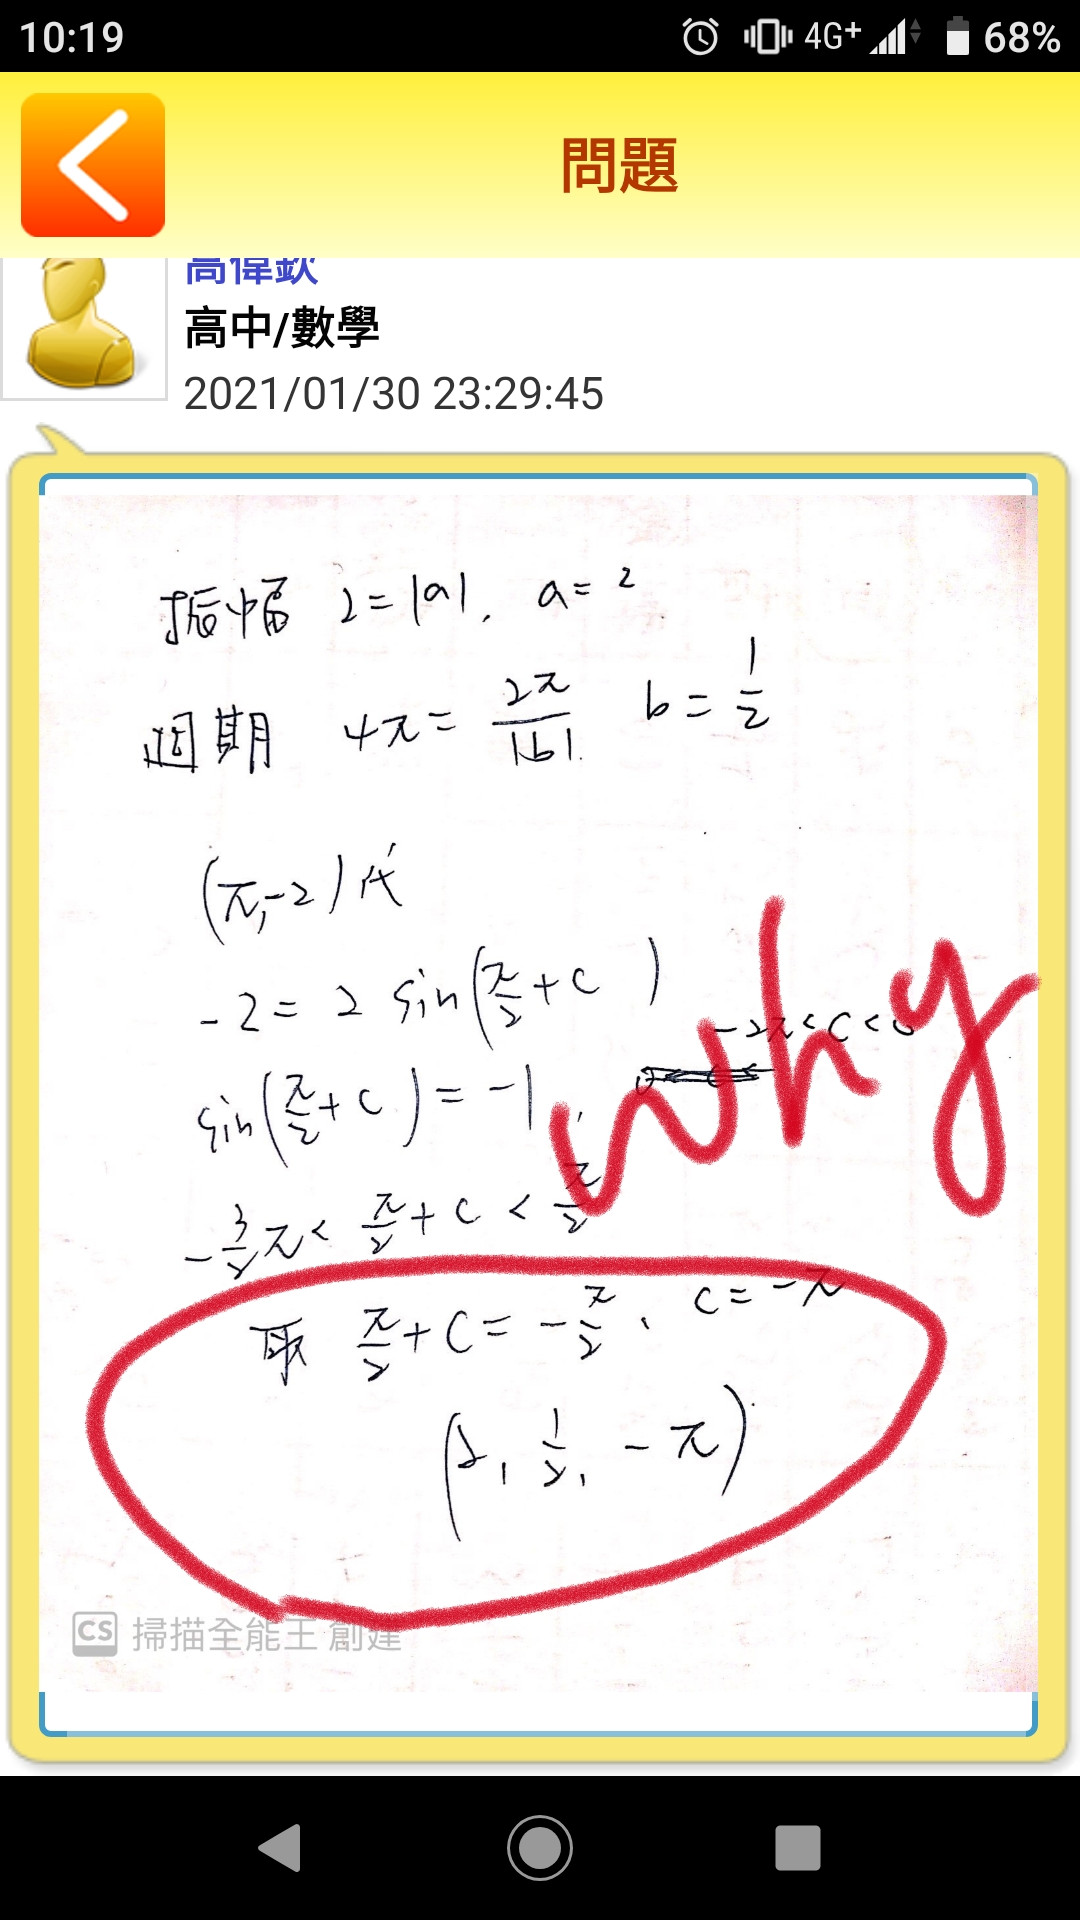 10:19 4G+ 68%
問題
高偉欽
高中/數學
2021/01/30 23:29:45
振幅 2=|a|, a=2
週期 4π= 2π/|b| b=1/2
(π,-2)代
-2=2 sin(π/2+c)
-2π<c<0
sin(π/2+c)=-1,
why
-3/2π<π/2+c<π/2
取 π/2+c=-π/2, c=-π
(2, 1/2, -π)
CS 掃描全能王 創建